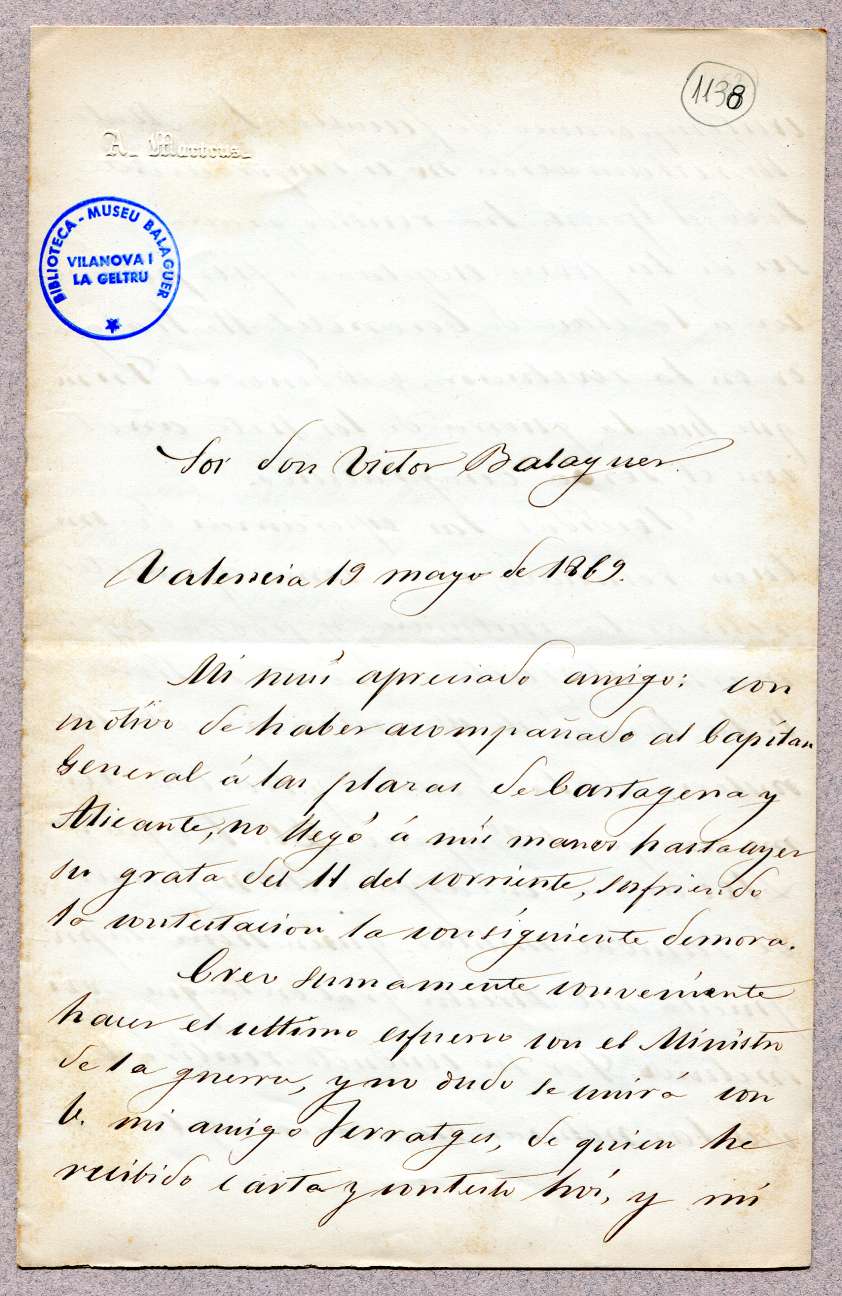 1138
A. 
BIBLIOTECA - MUSEU BALAGUER
VILANOVA I
LA GELTRU
Sor don Victor Balaguer.
Valencia 19 mayo de 1869.
Mi mui apreciado amigo: con
motivo de haber acompañado al Capitan
General á las plazas de Cartagena y
Alicante, no llegó á mis manos hasta ayer
su grata del 11 del corriente, sufriendo
la contestacion la consiguiente demora.
Creo sumamente conveniente
hacer el ultimo esfuerzo con el Ministro
de la guerra, y no dudo se unirá con
V. mi amigo Ferratges, de quien he
recibido carta y contesto hoi, y mi